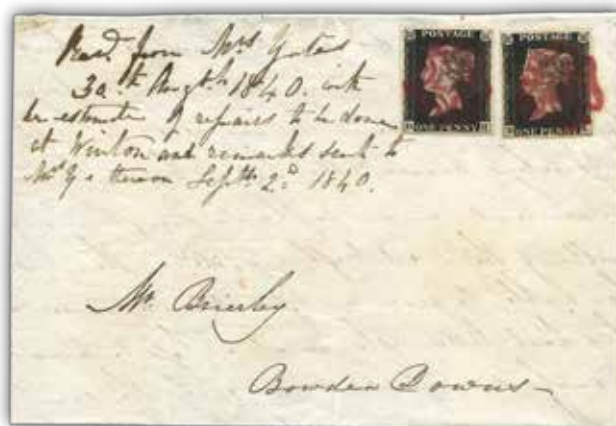 Recd. from Mrs Yates
30th Augt 1840. with
her estimate of repairs to be done
at Winton and remarks sent to
Mrs Y. thereon Septr. 2d 1840.
POSTAGE
ONE PENNY
POSTAGE
ONE PENNY
Mr. Brierley
Bowden Downs